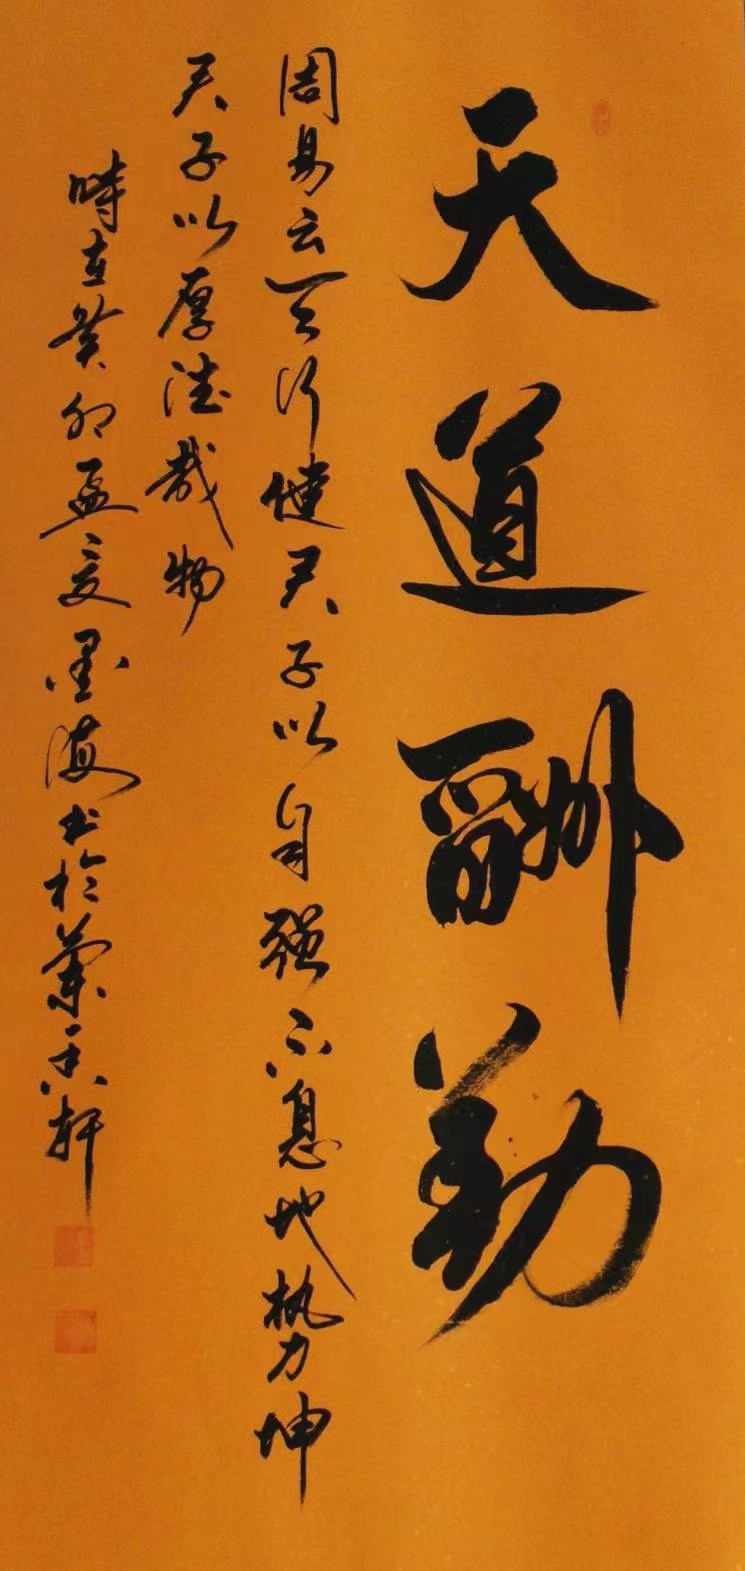 天道酬勤
周易云天行健君子以自强不息地势坤
君子以厚德载物
時在癸卯孟夏墨海书於兰香轩